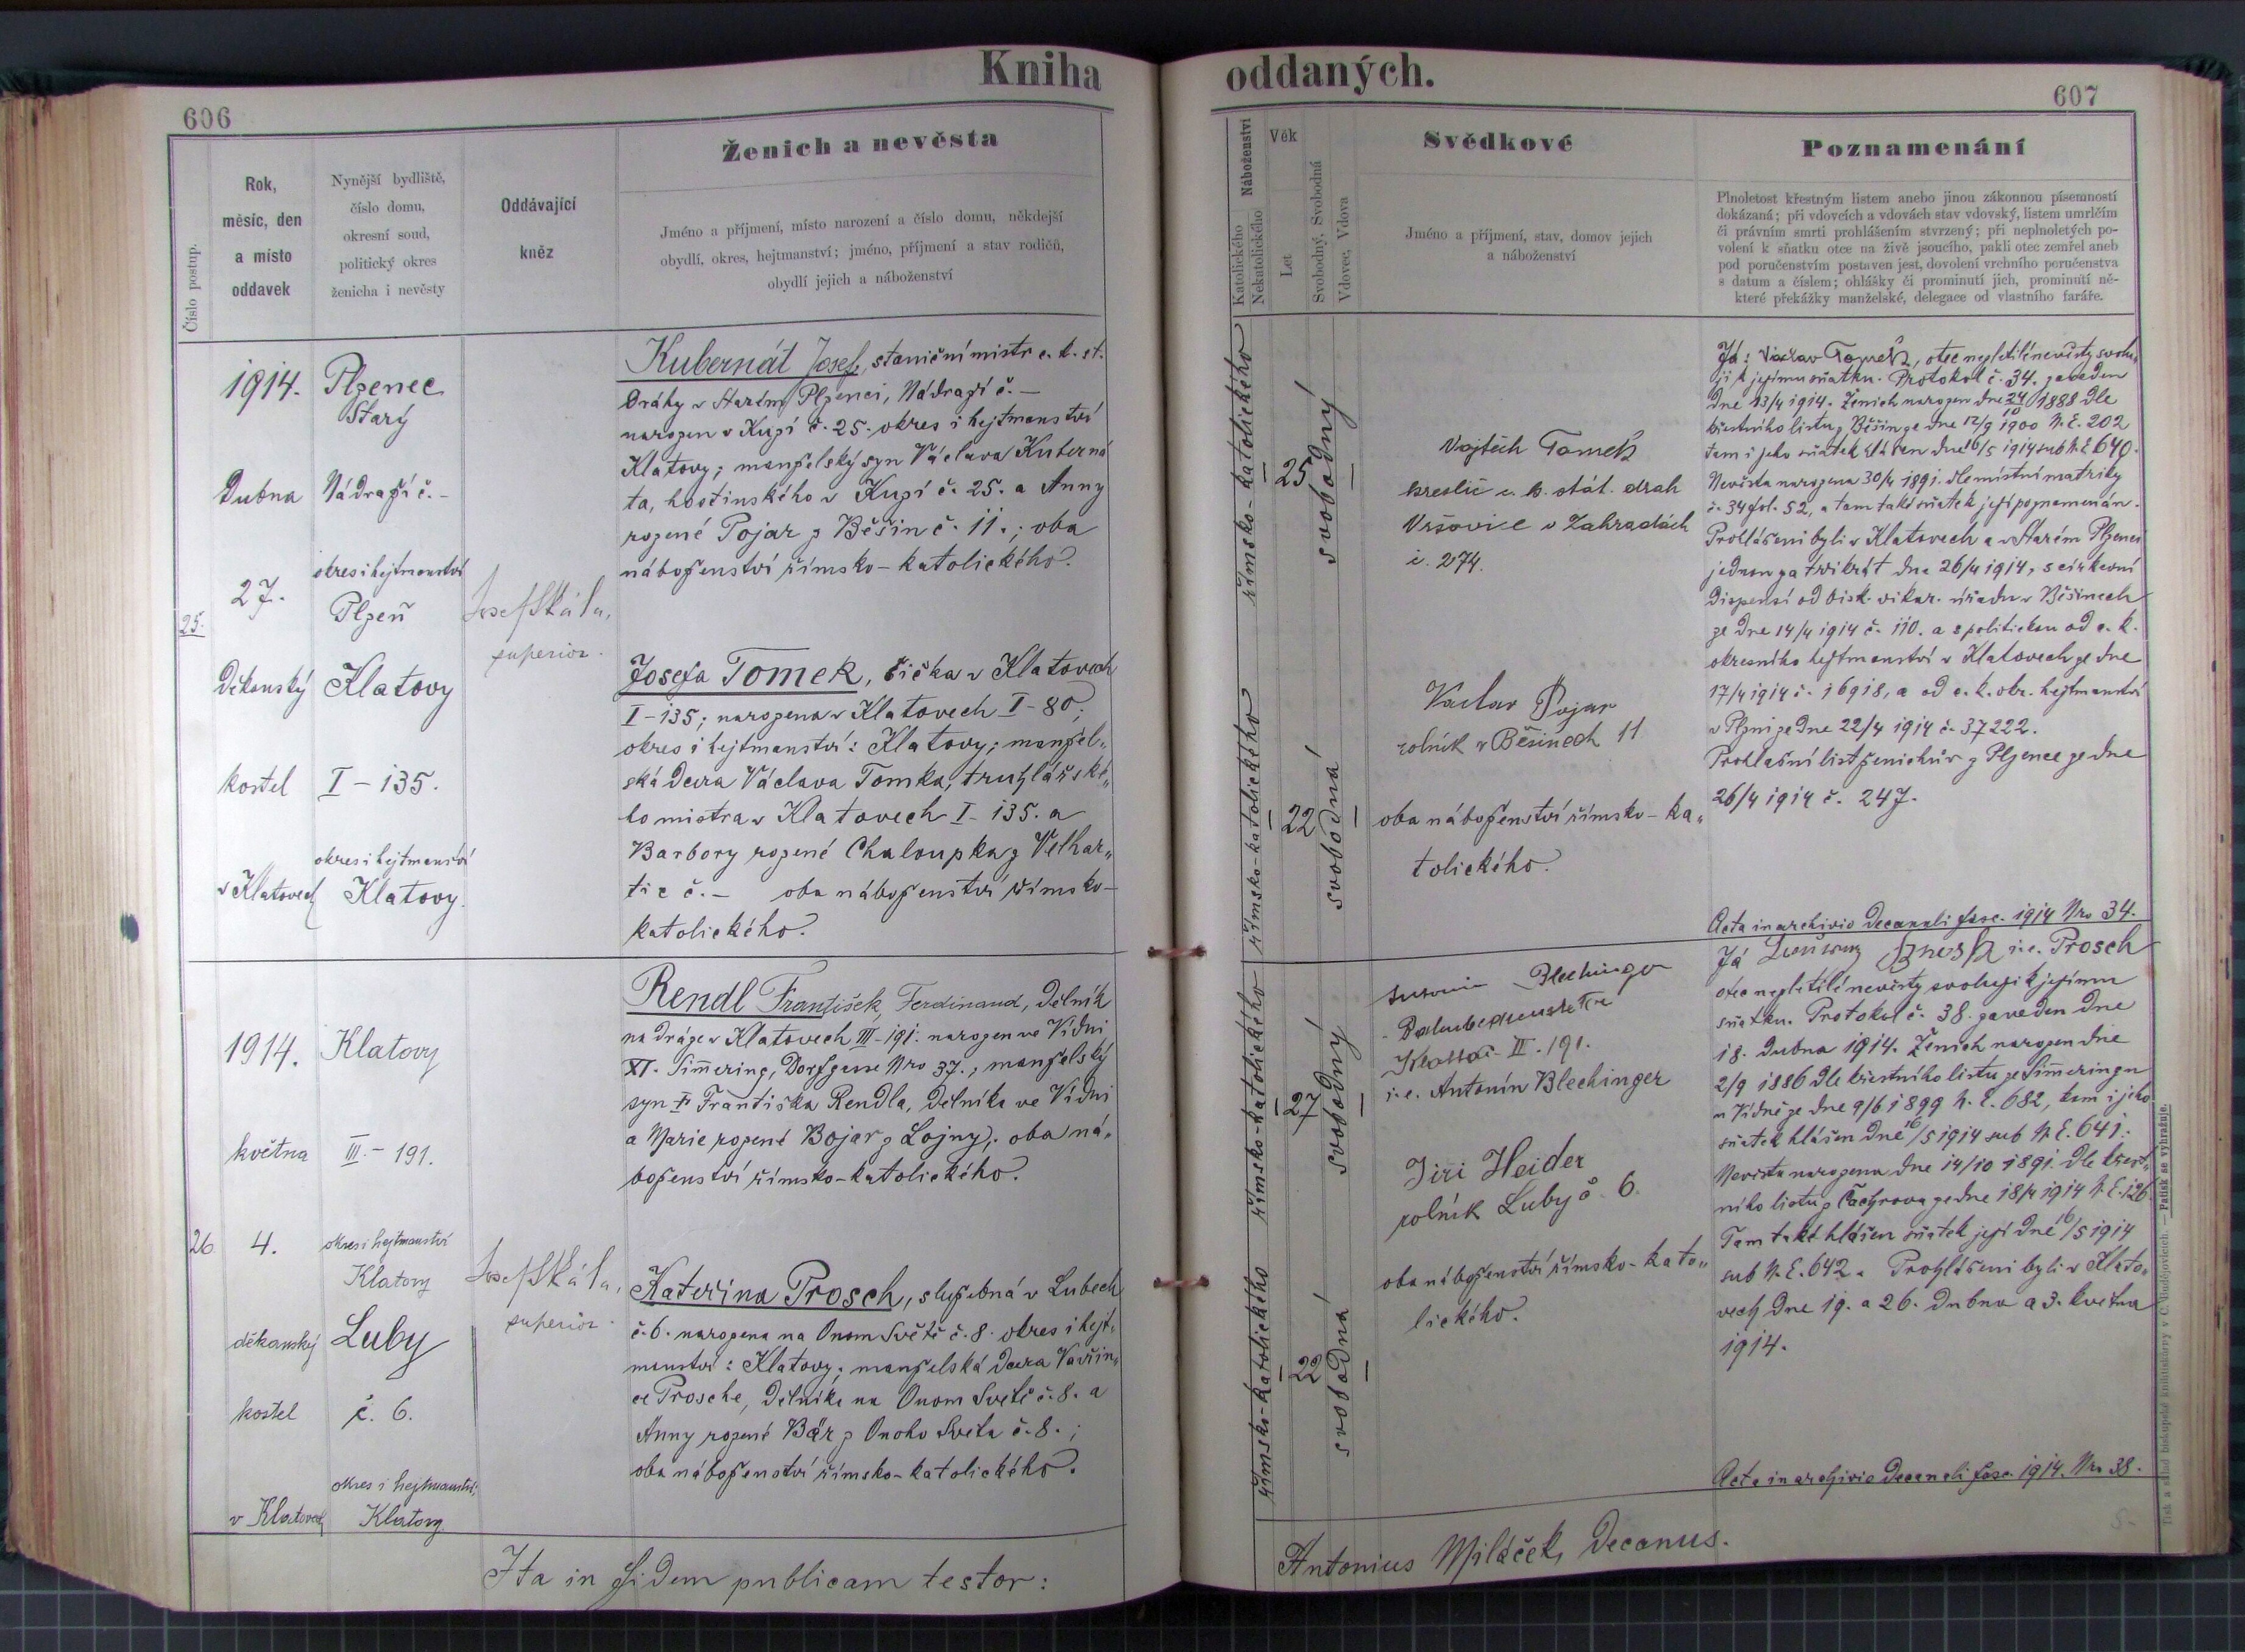 Kniha
606
Číslo postup.
Rok,
měsíc, den
a místo
oddavek
Nynější bydliště,
číslo domu,
okresní soud,
politický okres
ženicha i nevěsty
Oddávající
kněz
Ženich a nevěsta
Jméno a příjmení, místo narození a číslo domu, někdejší
obydlí, okres, hejtmanství; jméno, příjmení a stav rodičů,
obydlí jejich a náboženství
25.
1914.
Dubna
27.
Děkanský
kostel
v Klatovech
Plzenec
Starý
Nádraží č. -
okres i hejtmanství
Plzeň
Klatovy
I - 135.
okres i hejtmanství
Klatovy.
Josef Skála,
superior.
Kubernát Josef, staniční mistr c. k. st.
Dráhy v Starém Plzenci, Nádraží č. -
narozen v Kuzí č. 25. okres i hejtmanství
Klatovy; manželský syn Václava Kuberná
ta, hostinského v Kuzí č. 25. a Anny
rozené Pojar z Běšin č. 11.; oba
náboženství římsko-katolického.
Josefa Tomek, šička v Klatovech
I-135; narozena v Klatovech I-80;
okres i hejtmanství: Klatovy; manžel„
ská dcera Václava Tomka, truhlářské„
ho mistra v Klatovech I-135. a
Barbory rozené Chaloupka z Velhar„
tic č. - oba náboženství římsko-
katolického.
26
1914.
května
4.
děkanský
kostel
v Klatovech
Klatovy
III. - 191.
okres i hejtmanství
Klatovy
Luby
č. 6.
okres i hejtmanství:
Klatovy
Josef Skála,
superior.
Rendl František Ferdinand, dělník
na dráze v Klatovech III-191. narozen ve Vídni
XI. Sim̄ering, Dorfgasse Nro 37.; manželský
syn † Františka Rendla, dělníka ve Vídni
a Marie rozené Bojar z Lojny; oba ná„
boženství římsko-katolického.
Kateřina Prosch, služebná v Lubech
č. 6. narozena na Onom Světě č. 8. okres i hejt„
manství: Klatovy; manželská dcera Vavřin„
ce Prosche, dělníka na Onom Světě č. 8. a
Anny rozené Bär z Onoho Světa č. 8.;
oba náboženství římsko-katolického.
Ita in fidem publicam testor:
oddaných.
607
Náboženství
Katolického
Nekatolického
Věk
Let
Svobodný, Svobodná
Vdovec, Vdova
Svědkové
Jméno a příjmení, stav, domov jejich
a náboženství
Poznamenání
Plnoletost křestným listem anebo jinou zákonnou písemností
dokázaná; při vdovcích a vdovách stav vdovský, listem umrlčím
či právním smrti prohlášením stvrzený; při neplnoletých po-
volení k sňatku otce na živě jsoucího, pakli otec zemřel aneb
pod poručenstvím postaven jest, dovolení vrchního poručenstva
s datum a číslem; ohlášky či prominutí jich, prominutí ně-
které překážky manželské, delegace od vlastního faráře.
římsko-katolického
25
svobodný
římsko-katolického
22
svobodná
Vojtěch Tomek
kreslič c. k. stát. drah
Vršovice v Zahradách
č. 274.
Václav Pojar
rolník v Běšinech 11
oba náboženství římsko-ka„
tolického.
Já: Václav Tomek, otec nezletilé nevěsty svolu„
ji k jejímu sňatku. Protokol č. 34. zaveden
dne 13/4 1914. Ženich narozen dne 24/10 1888 dle
křestního listu z Běšin ze dne 12/9 1900 N. E. 202
tam i jeho sňatek hlášen dne 6/5 1914 sub N. E 640.
Nevěsta narozena 30/4 1891. dle místní matriky
č. 34 fol. 52, a tam také sňatek její poznamenán.
Prohlášeni byli v Klatovech a v Starém Plzenci
jednou za třikrát dne 26/4 1914, s církevní
dispensí od bisk. vikar. úřadu v Běšinech
ze dne 14/4 1914 č. 110. a s politickou od c. k.
okresního hejtmanství v Klatovech ze dne
17/4 1914 č. 16918, a od c. k. okr. hejtmanství
v Plzni ze dne 22/4 1914 č. 37222.
Prohlašní list ženichův z Plzence ze dne
26/4 1914 č. 247.
Acta in archivio decanali fasc. 1914 Nro 34.
římsko-katolického
27
svobodný
římsko-katolického
22
svobodná
Blechinger
III. 191.
i. e. Antonín Blechinger
Jiří Heider
rolník Luby č. 6.
oba náboženství římsko-kato„
lického.
Já i. e. Prosch
otec nezletilé nevěsty svoluji k jejímu
sňatku. Protokol č. 38. zaveden dne
18. dubna 1914. Ženich narozen dne
2/9 1886 dle křestního listu ze Sim̄eringu
u Vídně ze dne 9/6 1899 N. E. 682, kam i jeho
sňatek hlášen dne 6/5 1914 sub N. E. 641.
Nevěsta narozena dne 14/10 1891. dle křest„
ního listu z Čachrova ze dne 18/4 1914 N. E. 126.
Tam také hlášen sňatek její dne 6/5 1914
sub N. E. 642. Prohlášeni byli v Klato„
vech dne 19. a 26. Dubna a 3. května
1914.
Acta in archivio decanali fasc. 1914. Nro 38.
Antonius Miláček, Decanus.
Tisk a sklad biskupské knihtiskárny v Č. Budějovicích. — Patisk se vyhražuje.